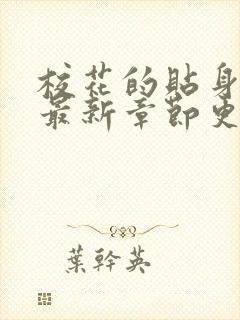 校花的貼身
最新章節更
葉幹英